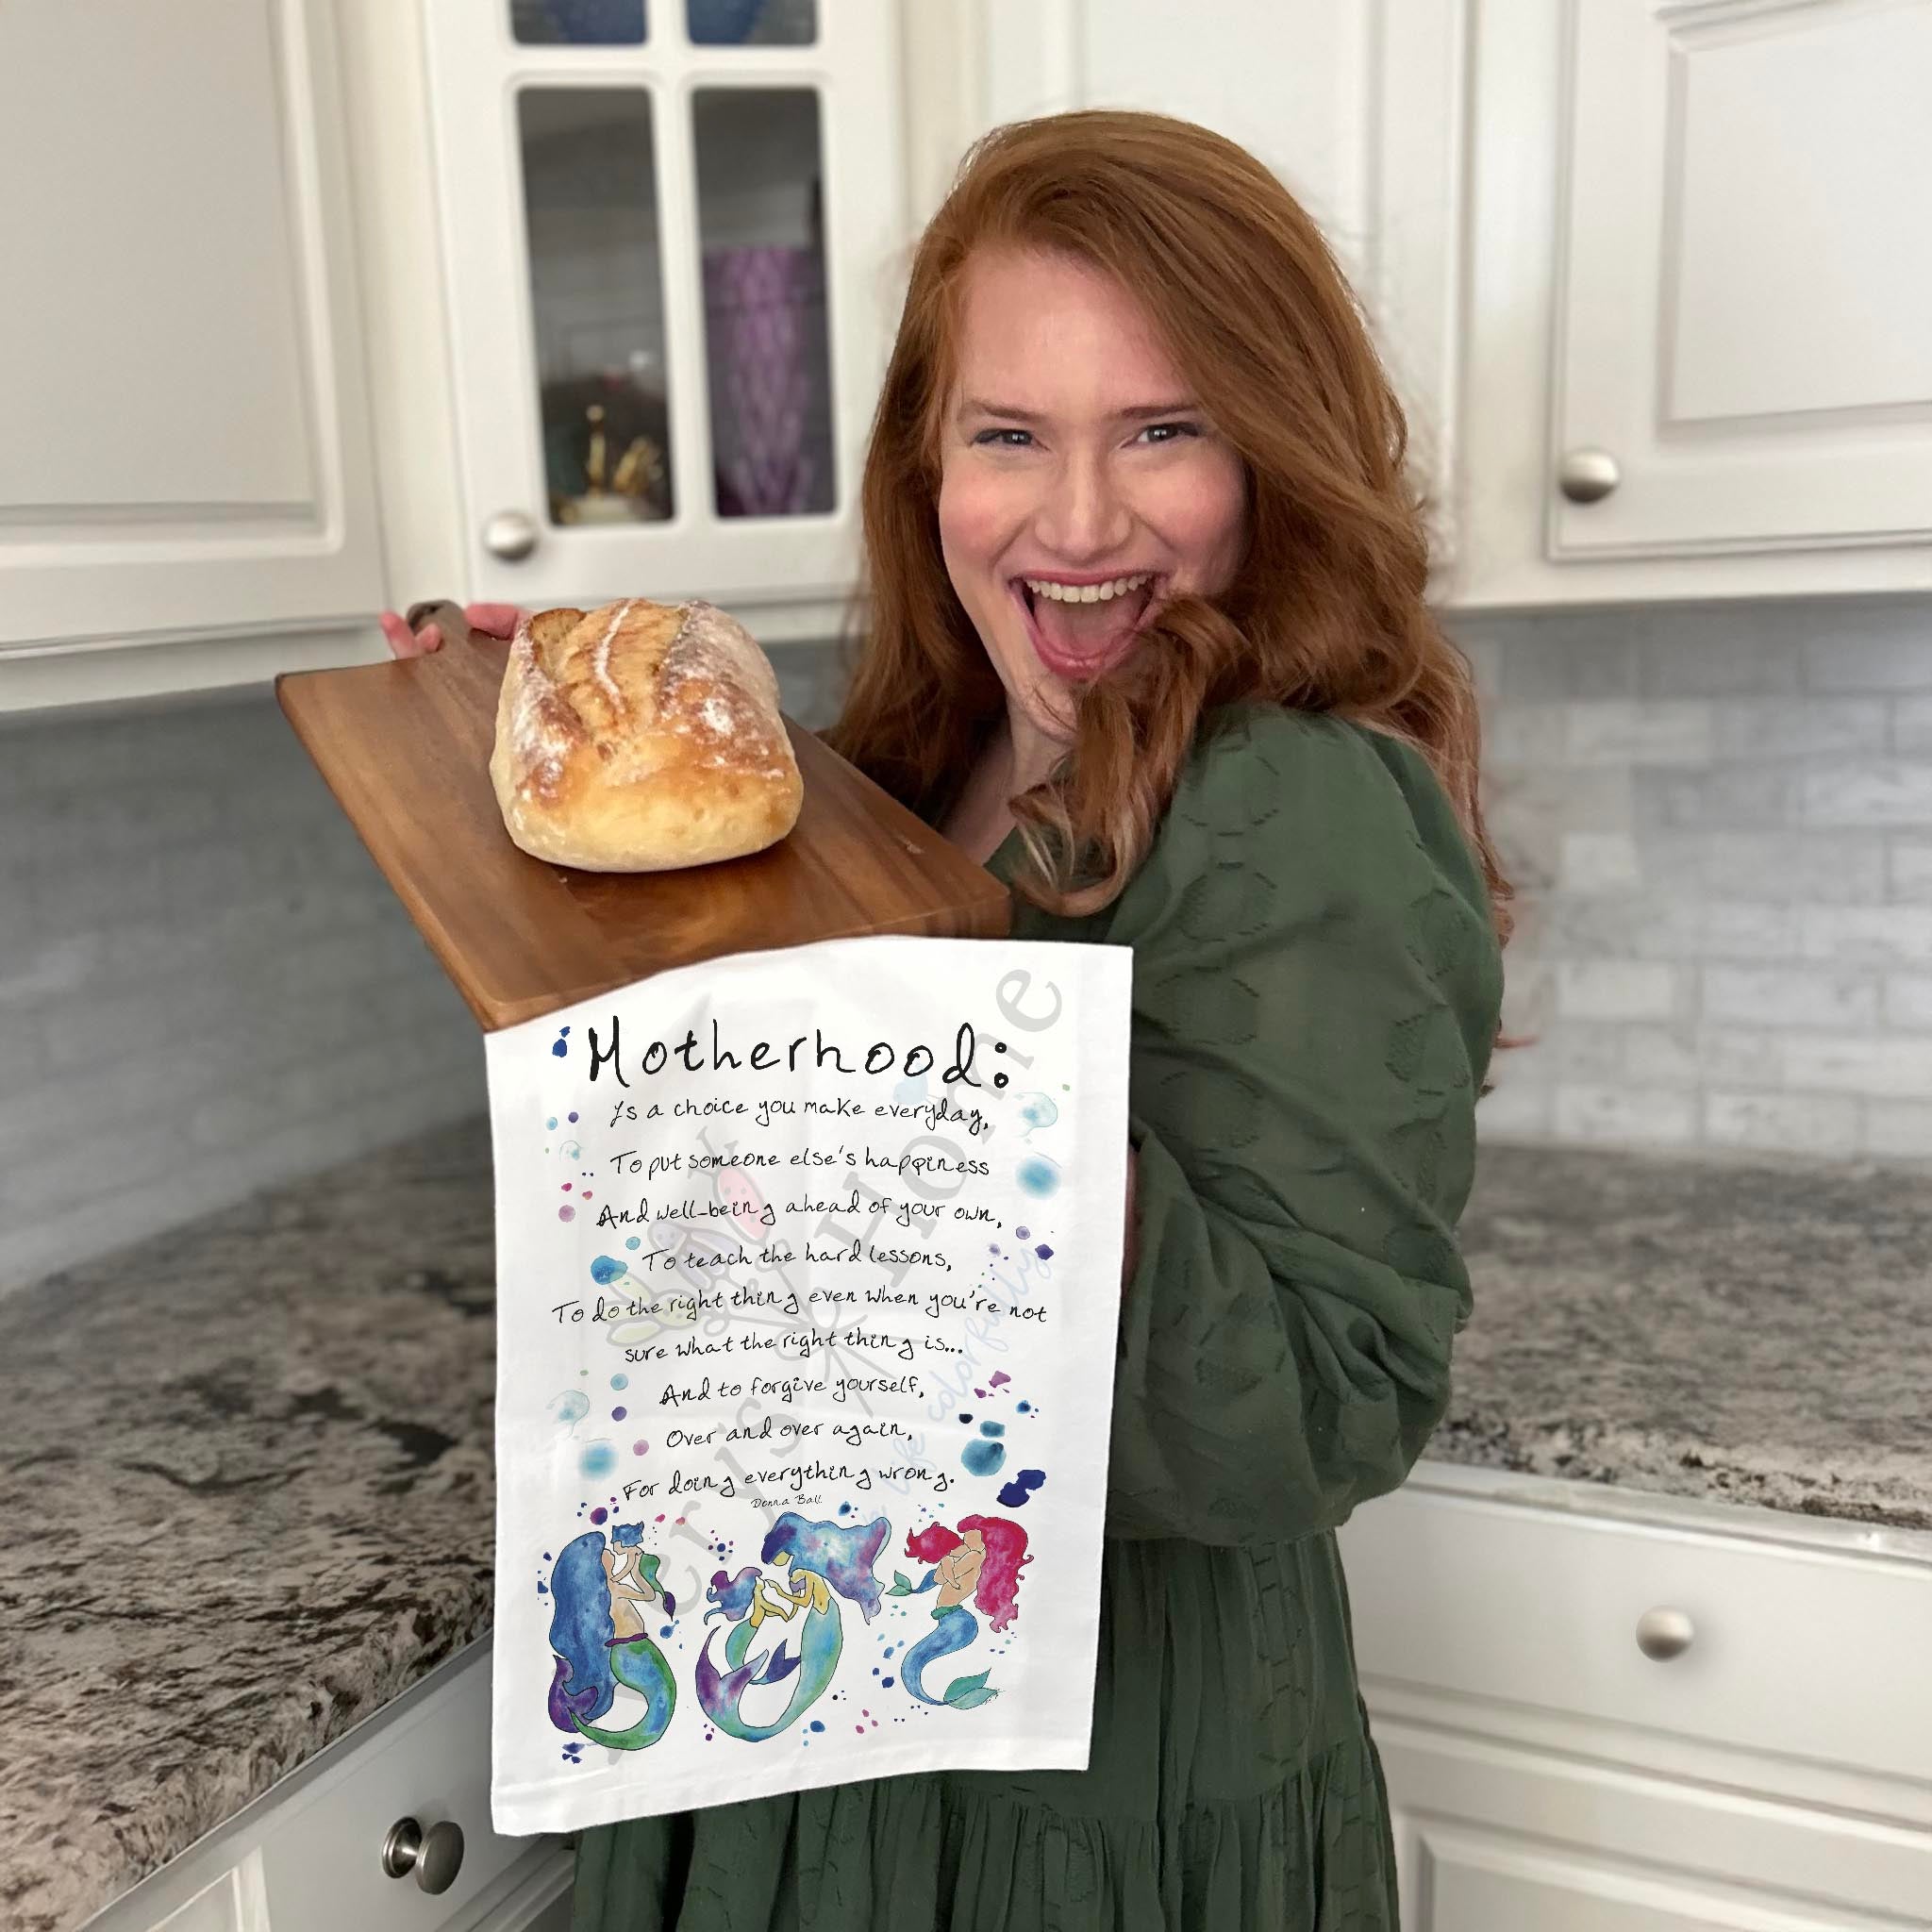 Motherhood:
Is a choice you make everyday,
To put someone else's happiness
And well-being ahead of your own,
To teach the hard lessons,
To do the right thing even when you're not
sure what the right thing is...
And to forgive yourself,
Over and over again,
For doing everything wrong.
Donna Ball
Home
colorfully